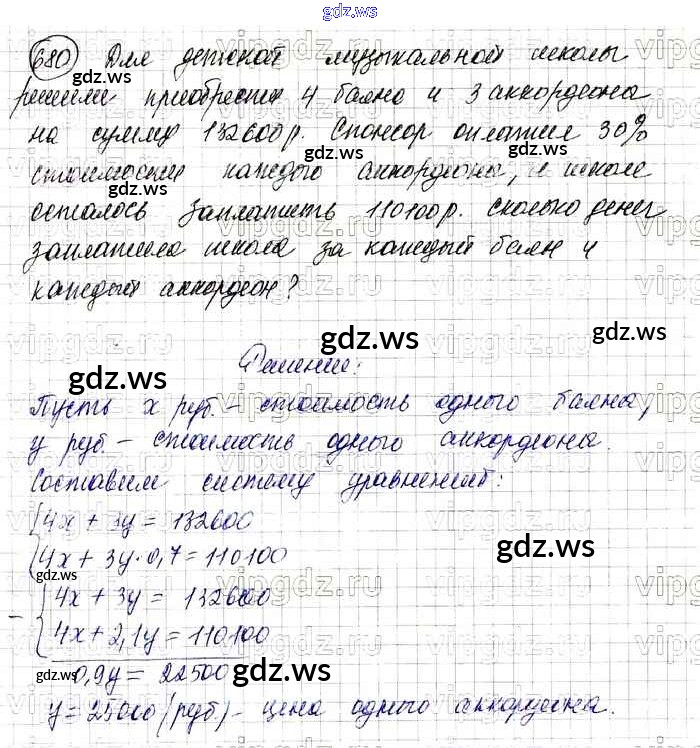 gdz.ws
680 Для детской музыкальной школы
решили приобрести 4 баяна и 3 аккордеона
на сумму 132600р. Спонсор оплатил 30%
стоимости каждого аккордеона, и школе
осталось заплатить 110100р. Сколько денег
заплатила школа за каждый баян и
каждый аккордеон?
Решение:
Пусть x руб. - стоимость одного баяна,
y руб. - стоимость одного аккордеона.
Составим систему уравнений:
{4x + 3y = 132600
{4x + 3y·0,7 = 110100
- {4x + 3y = 132600
{4x + 2,1y = 110100
0,9y = 22500
y = 25000 (руб.) - цена одного аккордеона.
gdz.ws
gdz.ws
gdz.ws
gdz.ws
gdz.ws
gdz.ws
gdz.ws
gdz.ws
gdz.ws
gdz.ws
vipgdz.ru